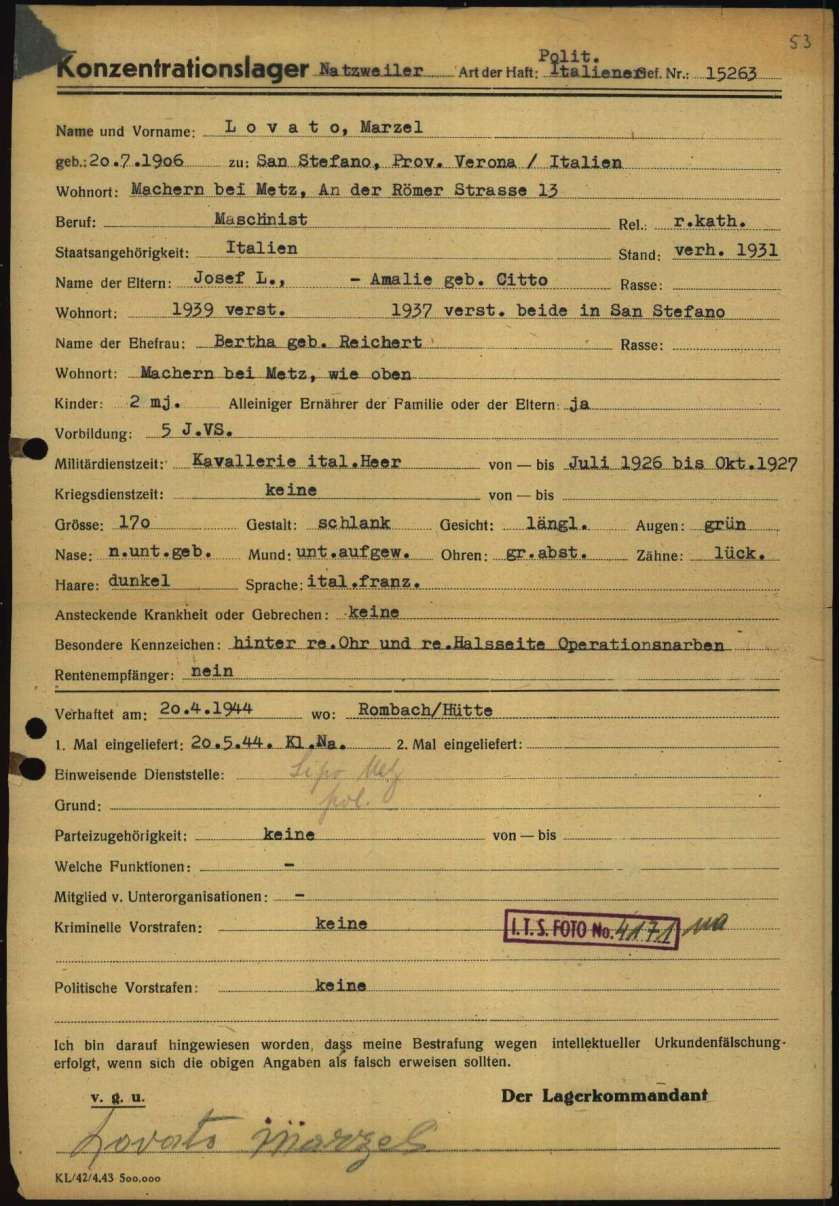 53
Konzentrationslager Natzweiler Art der Haft: Polit. Italiener Gef. Nr.: 15263
Name und Vorname: L o v a t o, Marzel
geb.: 2o.7.19o6 zu: San Stefano, Prov. Verona / Italien
Wohnort: Machern bei Metz, An der Römer Strasse 13
Beruf: Maschinist Rel.: r.kath.
Staatsangehörigkeit: Italien Stand: verh. 1931
Name der Eltern: Josef L., - Amalie geb. Citto Rasse:
Wohnort: 1939 verst. 1937 verst. beide in San Stefano
Name der Ehefrau: Bertha geb. Reichert Rasse:
Wohnort: Machern bei Metz, wie oben
Kinder: 2 mj. Alleiniger Ernährer der Familie oder der Eltern: ja
Vorbildung: 5 J.VS.
Militärdienstzeit: Kavallerie ital.Heer von — bis Juli 1926 bis Okt.1927
Kriegsdienstzeit: keine von — bis
Grösse: 17o Gestalt: schlank Gesicht: längl. Augen: grün
Nase: n.unt.geb. Mund: unt.aufgew. Ohren: gr.abst. Zähne: lück.
Haare: dunkel Sprache: ital.franz.
Ansteckende Krankheit oder Gebrechen: keine
Besondere Kennzeichen: hinter re.Ohr und re.Halsseite Operationsnarben
Rentenempfänger: nein
Verhaftet am: 2o.4.1944 wo: Rombach/Hütte
1. Mal eingeliefert: 2o.5.44. Kl.Na. 2. Mal eingeliefert:
Einweisende Dienststelle: Sipo Metz
Grund: pol.
Parteizugehörigkeit: keine von — bis
Welche Funktionen: -
Mitglied v. Unterorganisationen: -
Kriminelle Vorstrafen: keine
I.T.S. FOTO No. 4171
Politische Vorstrafen: keine
Ich bin darauf hingewiesen worden, dass meine Bestrafung wegen intellektueller Urkundenfälschung-
erfolgt, wenn sich die obigen Angaben als falsch erweisen sollten.
v. g. u. Der Lagerkommandant
Lovato Marzel
KL/42/4.43 5oo.ooo